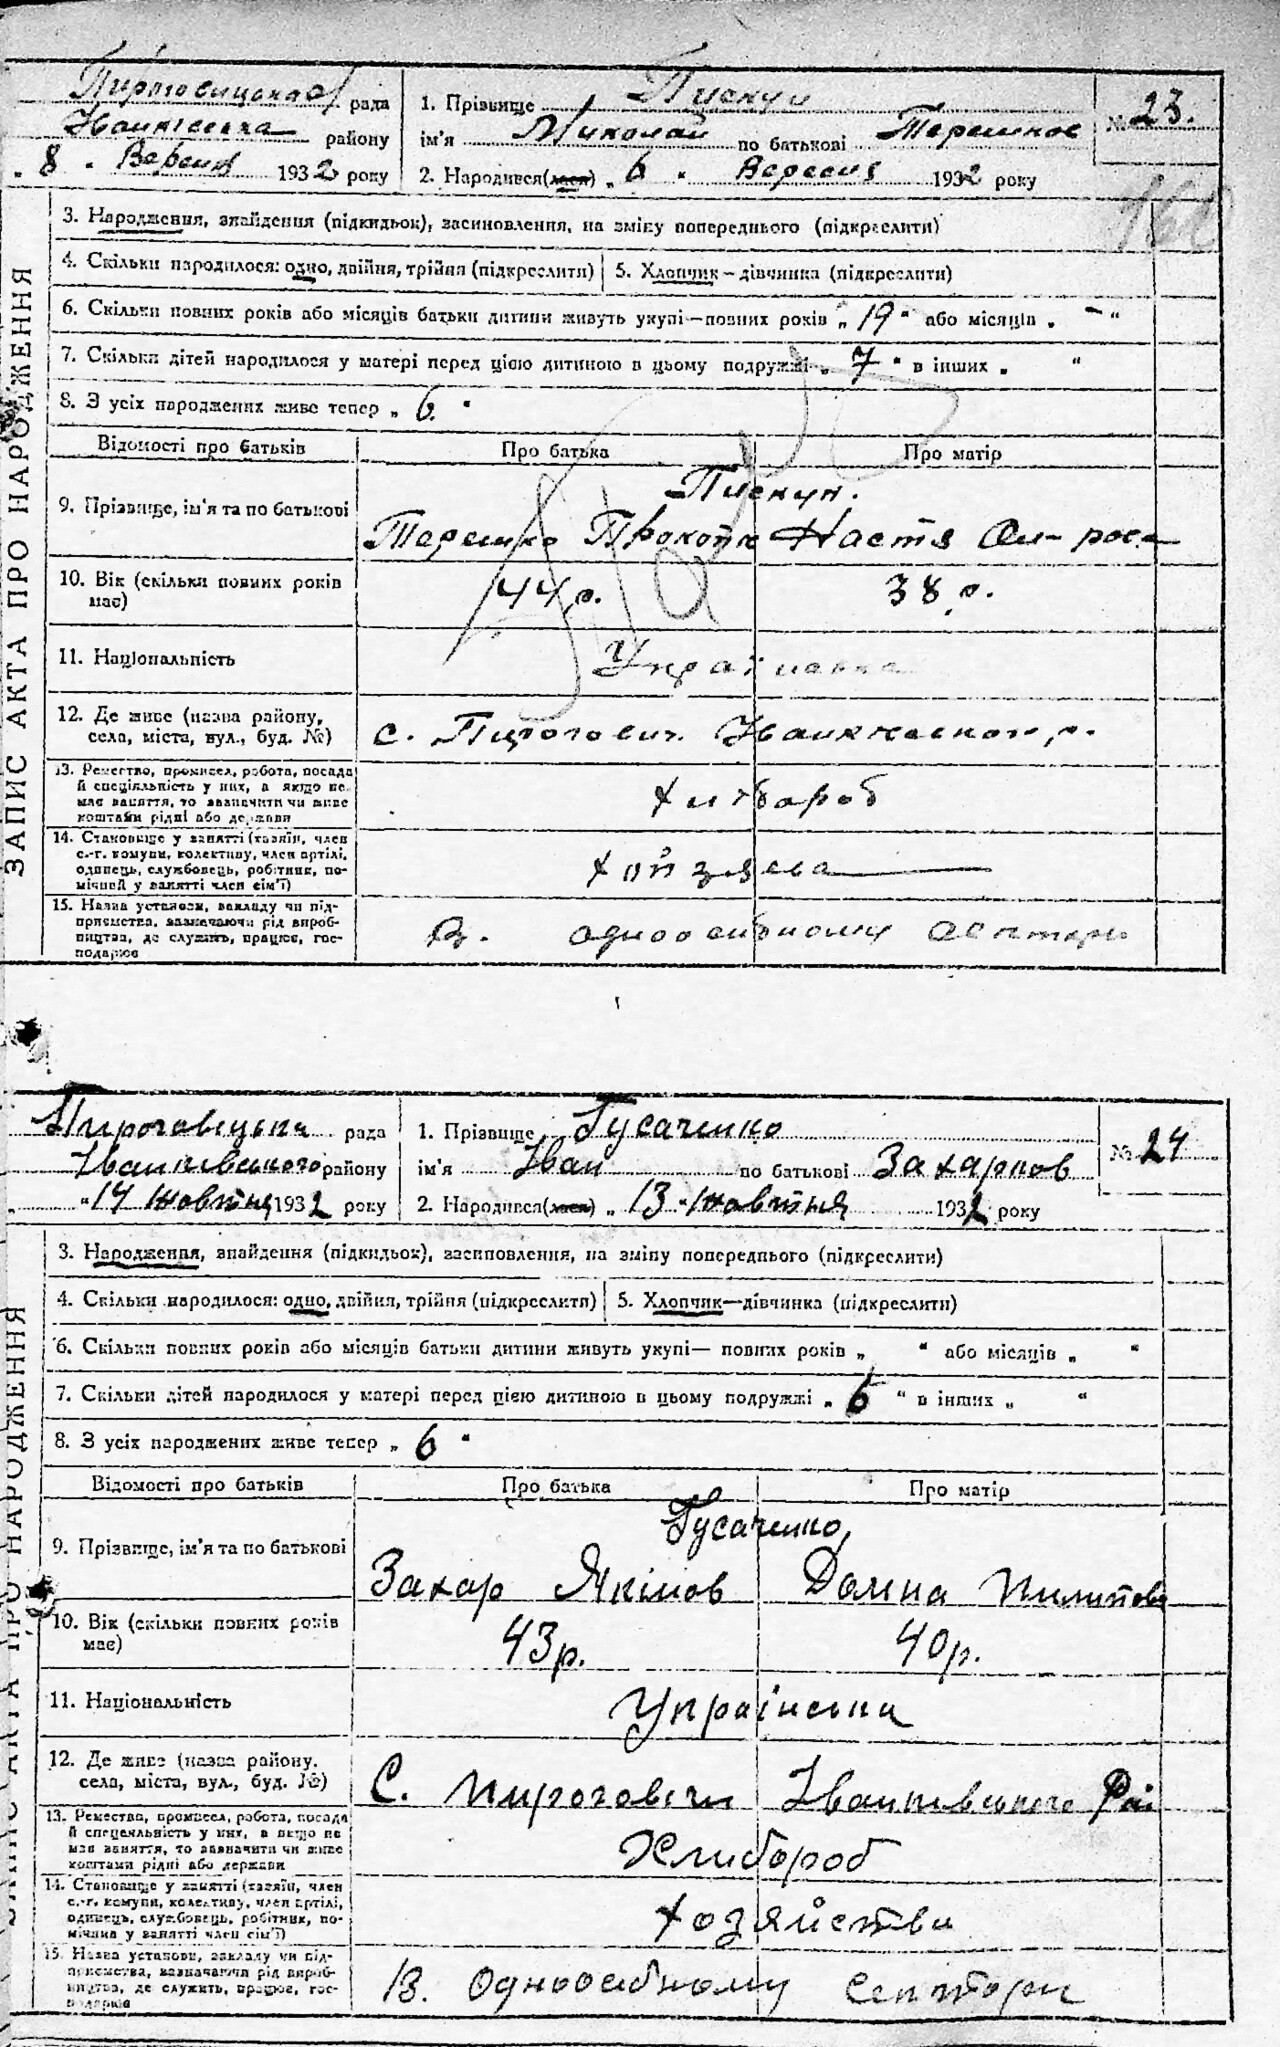 Пироговицька рада
Іванківська району
„ 8 „ Вересня 1932 року
1. Прізвище Пискун
ім'я Миколай по батькові Терешков
2. Народився(лася) „ 6 " Вересня 1932 року
№ 23.
3. Народження, знайдення (підкидьок), засиновлення, на зміну попереднього (підкреслити)
4. Скільки народилося: одно, двійня, трійня (підкреслити) 5. Хлопчик—дівчинка (підкреслити)
6. Скільки повних років або місяців батьки дитини живуть укупі—повних років „ 19 " або місяців „ – "
7. Скільки дітей народилося у матері перед цією дитиною в цьому подружжі „ 7 " в інших „ "
8. З усіх народжених живе тепер „ 6 "
Відомості про батьків Про батька Про матір
Пискун.
9. Прізвище, ім'я та по батькові
Терешко Прокопів Настя
10. Вік (скільки повних років має)
44 р. 38 р.
11. Національність
12. Де живе (назва району, села, міста, вул., буд. №)
с. Пироговичі
13. Ремество, промисел, робота, посада й спеціяльність у них, а якщо не має заняття, то зазначити чи живе коштами рідні або держави
Хлибороб
14. Становище у занятті (хазяїн, член с.-г. комуни, колективу, член артілі, одинець, службовець, робітник, помічний у занятті член сім'ї)
15. Назва установи, закладу чи підприємства, зазначаючи рід виробництва, де служить, працює, господарює
В. одноосибному
ЗАПИС АКТА ПРО НАРОДЖЕННЯ
Пироговіцька рада
Іванківського району
„ 14 жовтня 1932 року
1. Прізвище Гусаченко
ім'я Іван по батькові Захарков
2. Народився(лася) „ 13 " жовтня 1932 року
№ 24
3. Народження, знайдення (підкидьок), засиновлення, на зміну попереднього (підкреслити)
4. Скільки народилося: одно, двійня, трійня (підкреслити) 5. Хлопчик—дівчинка (підкреслити)
6. Скільки повних років або місяців батьки дитини живуть укупі— повних років „ " або місяців „ "
7. Скільки дітей народилося у матері перед цією дитиною в цьому подружжі „ 6 " в інших „ "
8. З усіх народжених живе тепер „ 6 "
Відомості про батьків Про батька Про матір
Гусаченко,
9. Прізвище, ім'я та по батькові
Захар Якімов Домна Пилипова
10. Вік (скільки повних років має)
43р. 40р.
11. Національність
Українська
12. Де живе (назва району, села, міста, вул., буд. №)
С. Пироговічи Іванківського Рай
13. Ремества, промисел, робота, посада й спеціяльність у них, а якщо не має заняття, то зазначити чи живе коштами рідні або держави
Хлибороб
14. Становище у занятті (хазяїн, член с.-г. комуни, колективу, член артілі, одинець, службовець, робітник, помічний у занятті член сім'ї)
хозяйства
15. Назва установи, закладу чи підприємства, зазначаючи рід виробництва, де служить, працює, господарює
В. Одноосибному сектори
ЗАПИС АКТА ПРО НАРОДЖЕННЯ